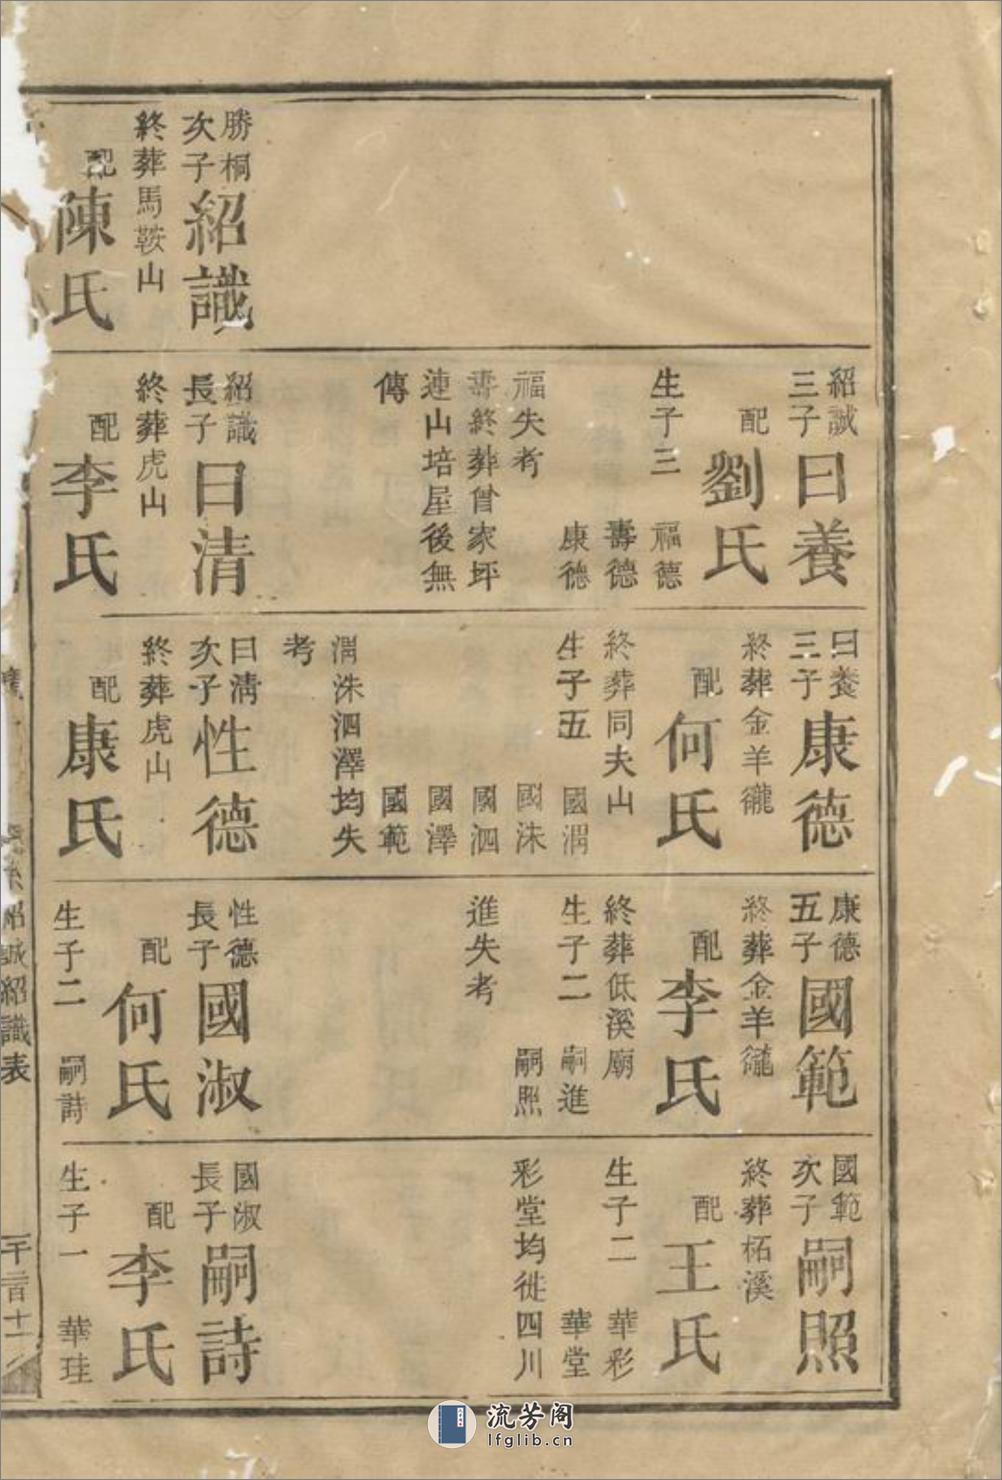 勝桐
次子
紹識
終葬馬鞍山
配
陳氏
紹誠
三子
曰養
配
劉氏
生子三
福德
壽德
康德
福失考
壽終葬曾家坪
連山培屋後無
傳
紹識
長子
曰清
終葬虎山
配
李氏
曰養
三子
康德
終葬金羊
配
何氏
終葬同夫山
生子五
國渭
國洙
國泗
國澤
國範
渭洙泗澤均失
考
曰清
次子
性德
終葬虎山
配
康氏
康德
五子
國範
終葬金羊
配
李氏
終葬低溪廟
生子二
嗣進
嗣照
進失考
性德
長子
國淑
配
何氏
生子二
嗣詩
國範
次子
嗣照
終葬柘溪
配
王氏
生子二
華彩
華堂
彩堂均徙四川
國淑
長子
嗣詩
配
李氏
生子一
華珪
紹誠紹識表
流芳阁
lfglib.cn